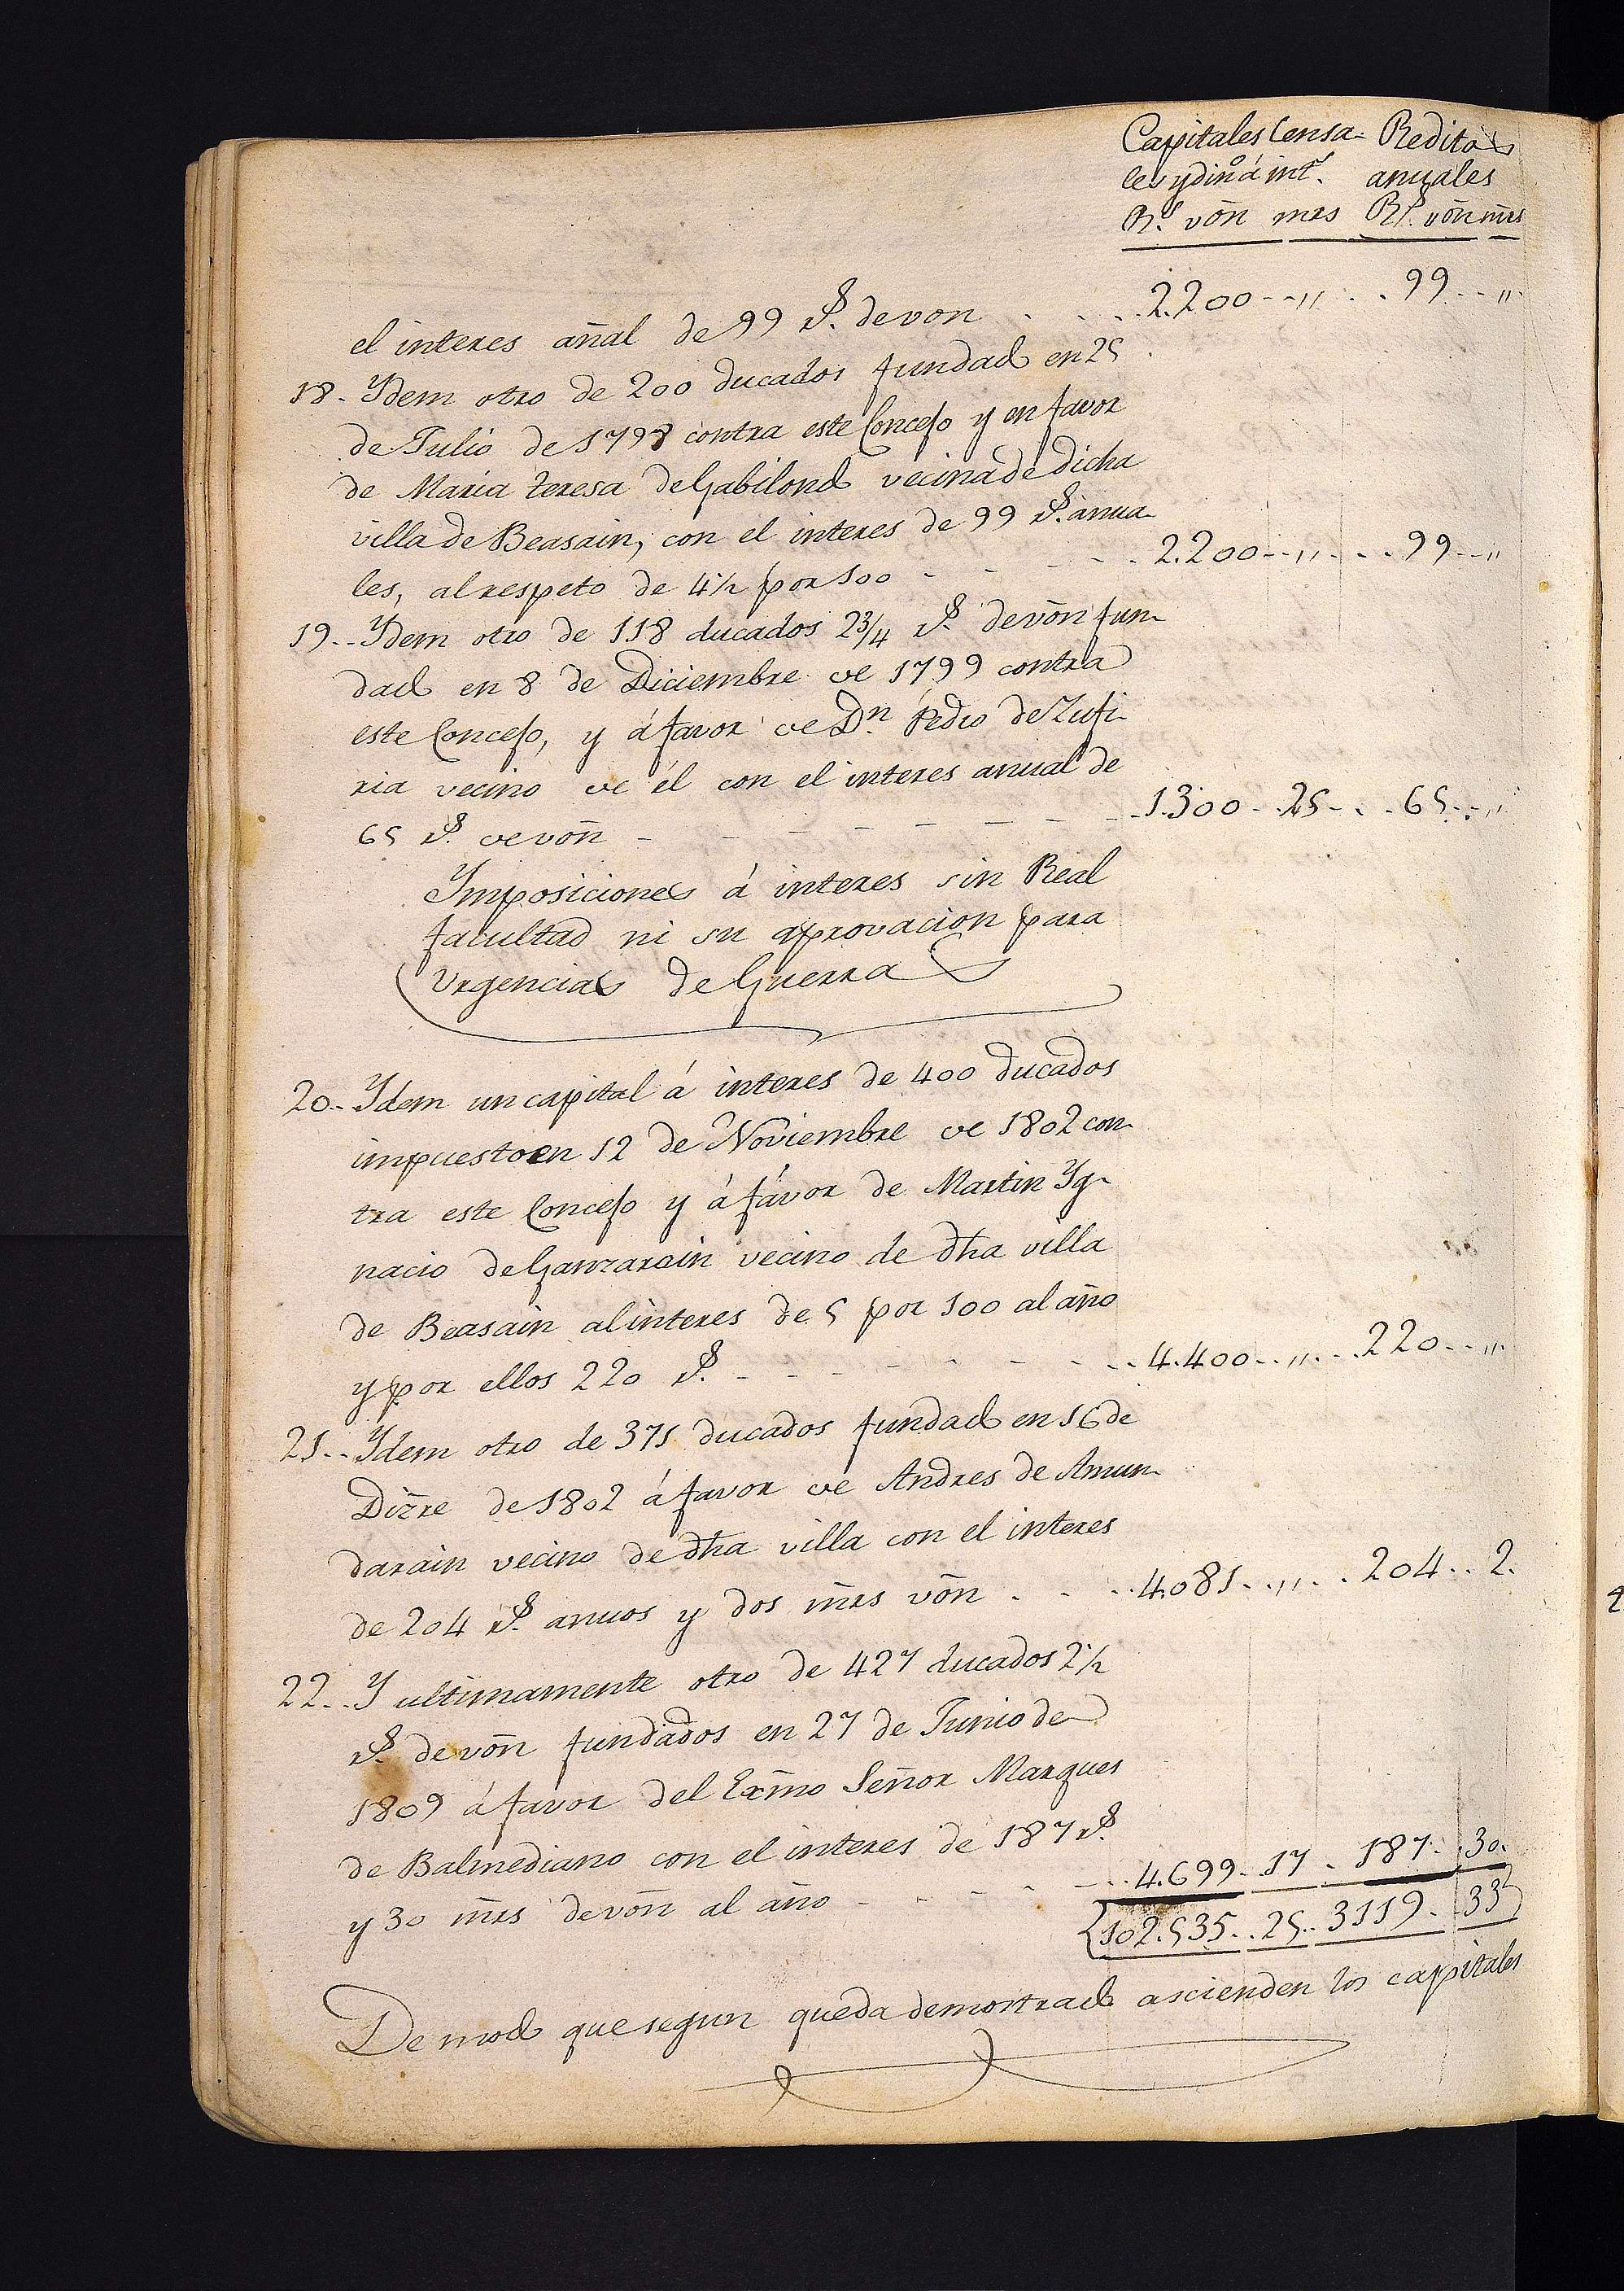 Capitales Censa- Reditos
les y din.º á int.s anuales
R.s von mrs R.s von mrs
el interes añal de 99 r.s de von . . . . 2.200 - - ,, . . . 99 - - ,,
18. Ydem otro de 200 ducados fundado en 25
de Julio de 1798 contra este Concejo y en favor
de Maria teresa de Gabilondo vecina de dicha
villa de Beasain, con el interes de 99 r.s anua-
les, al respeto de 4½ por 100 - - - - - 2.200 - - ,, - - . 99 - - ,,
19. Ydem otro de 118 ducados 2¾ r.s de von fun-
dado en 8 de Diciembre de 1799 contra
este Concejo, y á favor de Dn. Pedro de Zufi-
ria vecino de él con el interes anual de
65 r.s de von - - - - - - - 1.300 - . 25 - . . 65 - . ,,
Ymposiciones á interes sin Real
facultad ni su aprovacion para
Urgencias de Guerra
20. Ydem un capital á interes de 400 ducados
impuesto en 12 de Noviembre de 1802 con-
tra este Concejo y á favor de Martin Yg-
nacio de Ganzarain vecino de dha villa
de Beasain al interes de 5 por 100 al año
y por ellos 220 r.s - - - - - - . 4.400 - . ,, - . . 220 - - ,,
21. Ydem otro de 371 ducados fundado en 16 de
Dizre de 1802 á favor de Andres de Amun-
darain vecino de dha villa con el interes
de 204 r.s anuos y dos mrs von . . . . 4.081 - . ,, . . 204 . . 2.
22. Y ultimamente otro de 427 ducados 2½
r.s de von fundados en 27 de Junio de
1809 á favor del Exmo Señor Marques
de Balmediano con el interes de 187 r.s
y 30 mrs de von al año - - - - - . . 4.699 - 17 . 187 . 30.
102.535 . . 25 . . 3119 . 33
De modo que segun queda demostrado ascienden los capitales